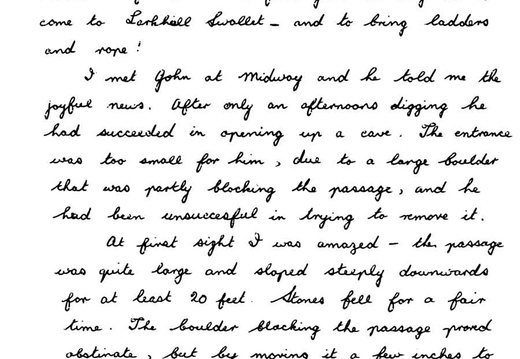 come to Larkhall Swallet - and to bring ladders
and rope!
I met John at Midway and he told me the
joyful news. After only an afternoons digging he
had succeeded in opening up a cave. The entrance
was too small for him, due to a large boulder
that was partly blocking the passage, and he
had been unsuccesful in trying to remove it.
At first sight I was amazed - the passage
was quite large and sloped steeply downwards
for at least 20 feet. Stones fell for a fair
time. The boulder blocking the passage proved
obstinate, but by moving it a few inches to